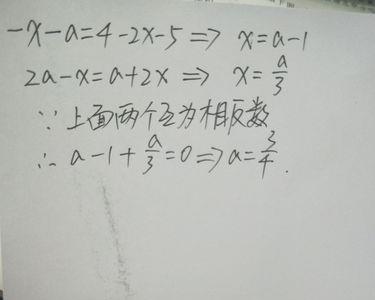 -x-a=4-2x-5⇒ x=a-1
2a-x=a+2x ⇒ x=a/3
∵上面两个互为相反数
∴ a-1+a/3=0⇒a=3/4.